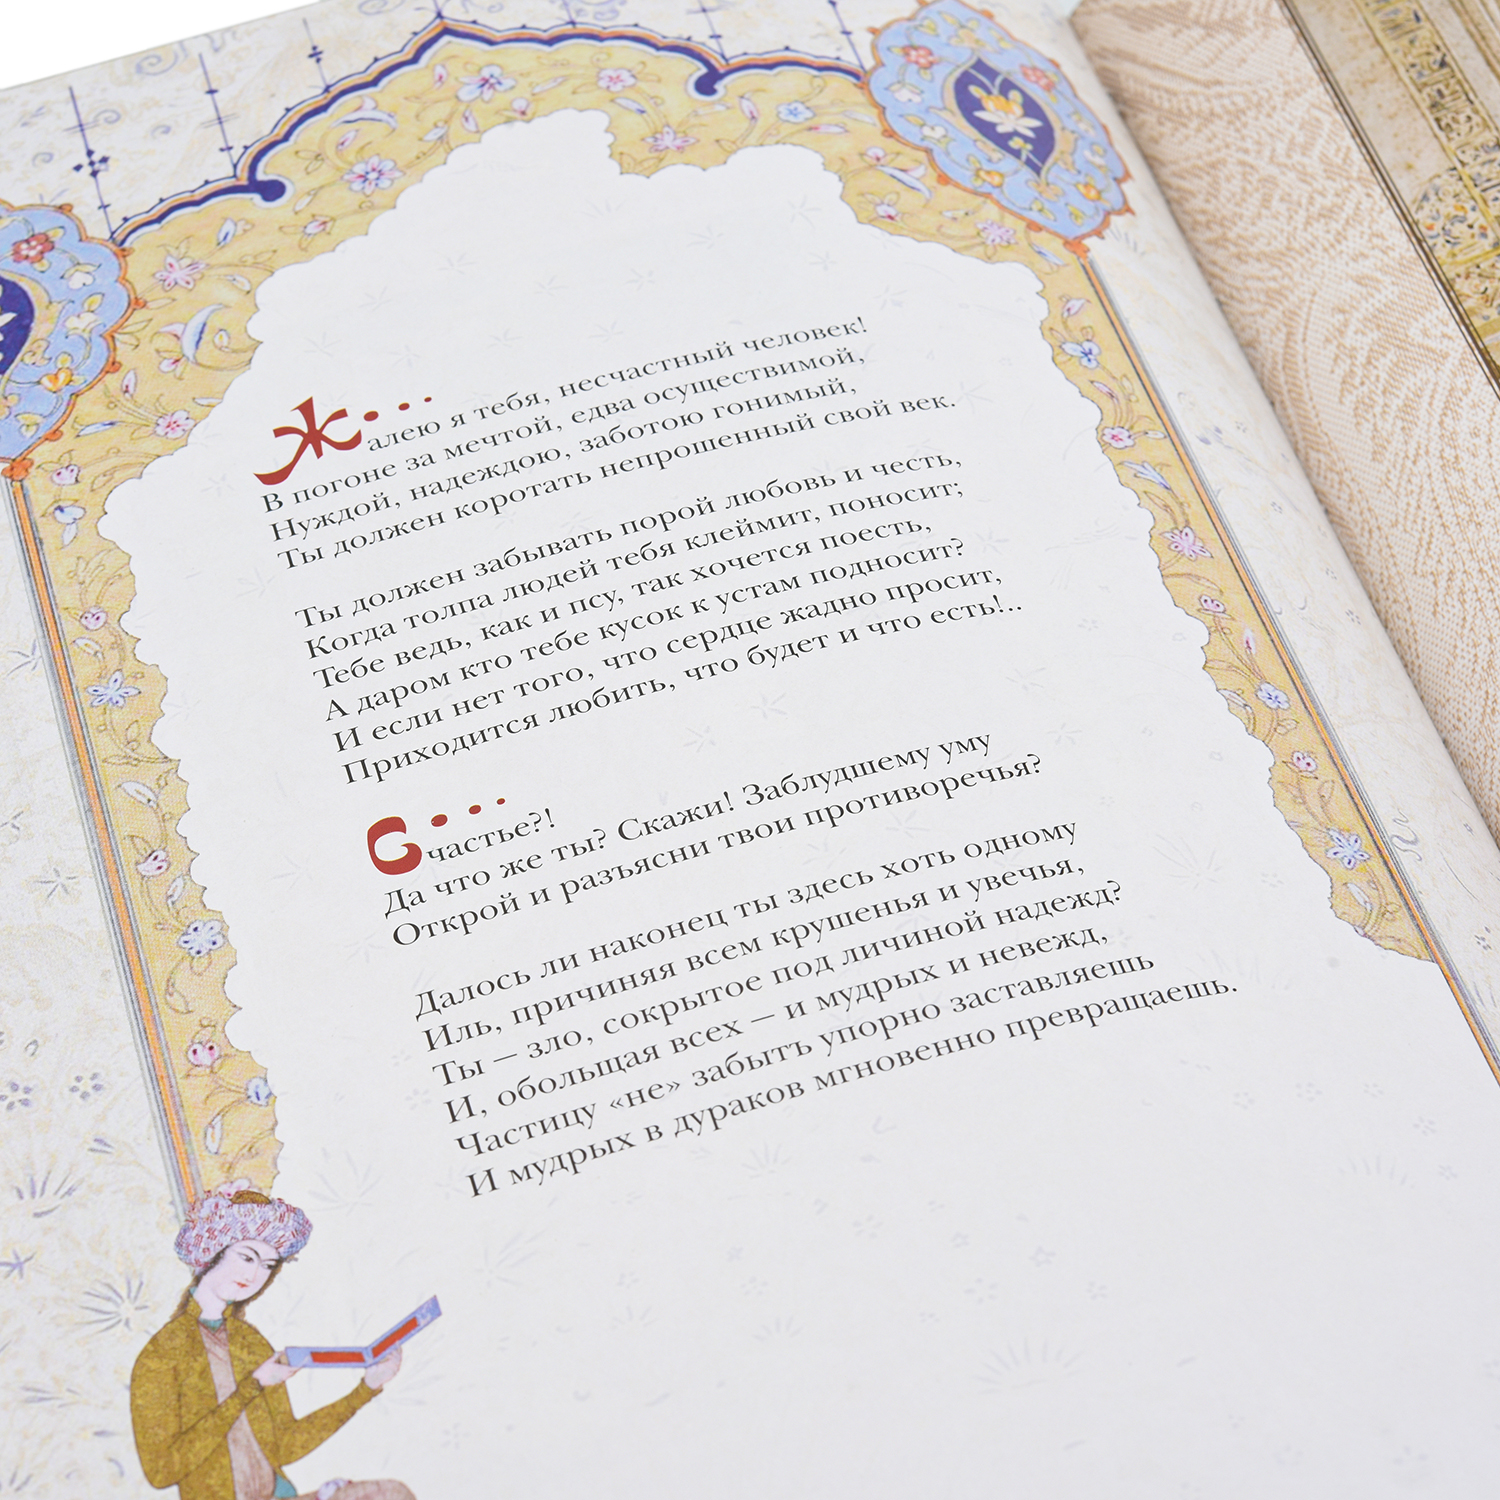 Ж...алею я тебя, несчастный человек!
В погоне за мечтой, едва осуществимой,
Нуждой, надеждою, заботою гонимый,
Ты должен коротать непрошенный свой век.
Ты должен забывать порой любовь и честь,
Когда толпа людей тебя клеймит, поносит;
Тебе ведь, как и псу, так хочется поесть,
А даром кто тебе кусок к устам подносит?
И если нет того, что сердце жадно просит,
Приходится любить, что будет и что есть!..
С...частье?!
Да что же ты? Скажи! Заблудшему уму
Открой и разъясни твои противоречья?
Далось ли наконец ты здесь хоть одному
Иль, причиняя всем крушенья и увечья,
Ты – зло, сокрытое под личиной надежд?
И, обольщая всех – и мудрых и невежд,
Частицу «не» забытъ упорно заставляешь
И мудрых в дураков мгновенно превращаешь.